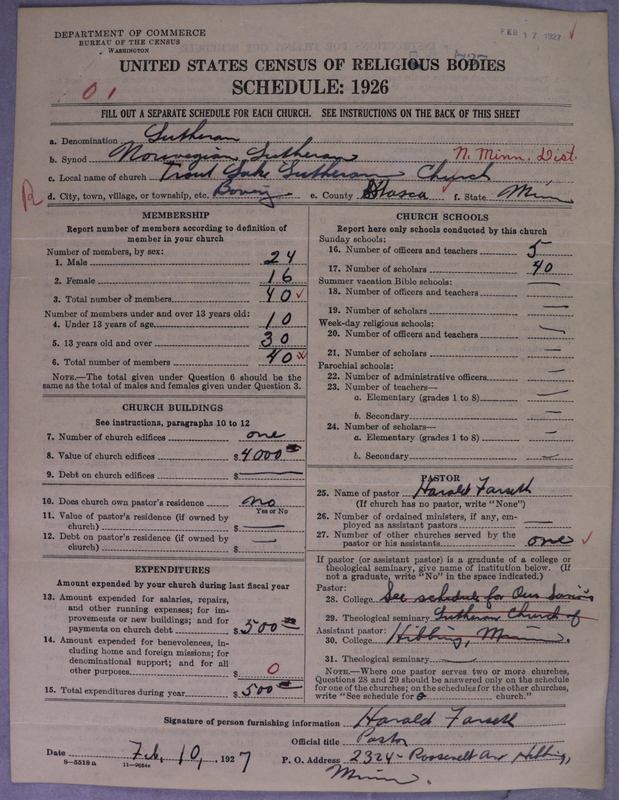 DEPARTMENT OF COMMERCE
BUREAU OF THE CENSUS
WASHINGTON
FEB 12 1927
UNITED STATES CENSUS OF RELIGIOUS BODIES
SCHEDULE: 1926
FILL OUT A SEPARATE SCHEDULE FOR EACH CHURCH. SEE INSTRUCTIONS ON THE BACK OF THIS SHEET
a. Denomination Lutheran
b. Synod Norwegian Lutheran N. Minn. Dist.
c. Local name of church Trout Lake Lutheran Church
R d. City, town, village, or township, etc. Bovey e. County Itasca f. State Minn
MEMBERSHIP
Report number of members according to definition of
member in your church
Number of members, by sex:
1. Male 24
2. Female 16
3. Total number of members 40
Number of members under and over 13 years old:
4. Under 13 years of age 10
5. 13 years old and over 30
6. Total number of members 40
NOTE.—The total given under Question 6 should be the
same as the total of males and females given under Question 3.
CHURCH BUILDINGS
See instructions, paragraphs 10 to 12
7. Number of church edifices one
8. Value of church edifices $4000
9. Debt on church edifices $ —
10. Does church own pastor's residence no
Yes or No
11. Value of pastor's residence (if owned by
church) $ —
12. Debt on pastor's residence (if owned by
church) $ —
EXPENDITURES
Amount expended by your church during last fiscal year
13. Amount expended for salaries, repairs,
and other running expenses; for im-
provements or new buildings; and for
payments on church debt $500
14. Amount expended for benevolences, in-
cluding home and foreign missions; for
denominational support; and for all
other purposes $ 0
15. Total expenditures during year $500
CHURCH SCHOOLS
Report here only schools conducted by this church
Sunday schools:
16. Number of officers and teachers 5
17. Number of scholars 40
Summer vacation Bible schools:
18. Number of officers and teachers —
19. Number of scholars —
Week-day religious schools:
20. Number of officers and teachers —
21. Number of scholars —
Parochial schools:
22. Number of administrative officers —
23. Number of teachers—
a. Elementary (grades 1 to 8) —
b. Secondary —
24. Number of scholars—
a. Elementary (grades 1 to 8) —
b. Secondary —
PASTOR
25. Name of pastor Harald Farseth
(If church has no pastor, write "None")
26. Number of ordained ministers, if any, em-
ployed as assistant pastors —
27. Number of other churches served by the
pastor or his assistants one
If pastor (or assistant pastor) is a graduate of a college or
theological seminary, give name of institution below. (If
not a graduate, write "No" in the space indicated.)
Pastor:
28. College See schedule for Our Savior's
29. Theological seminary Lutheran Church of
Assistant pastor:
30. College Hibbing, Minn.
31. Theological seminary —
NOTE.—Where one pastor serves two or more churches,
Questions 28 and 29 should be answered only on the schedule
for one of the churches; on the schedules for the other churches,
write "See schedule for church."
Signature of person furnishing information Harald Farseth
Official title Pastor
Date Feb. 10, 1927 P. O. Address 2324 Roosevelt Ave Hibbing,
Minn.
8-5518a